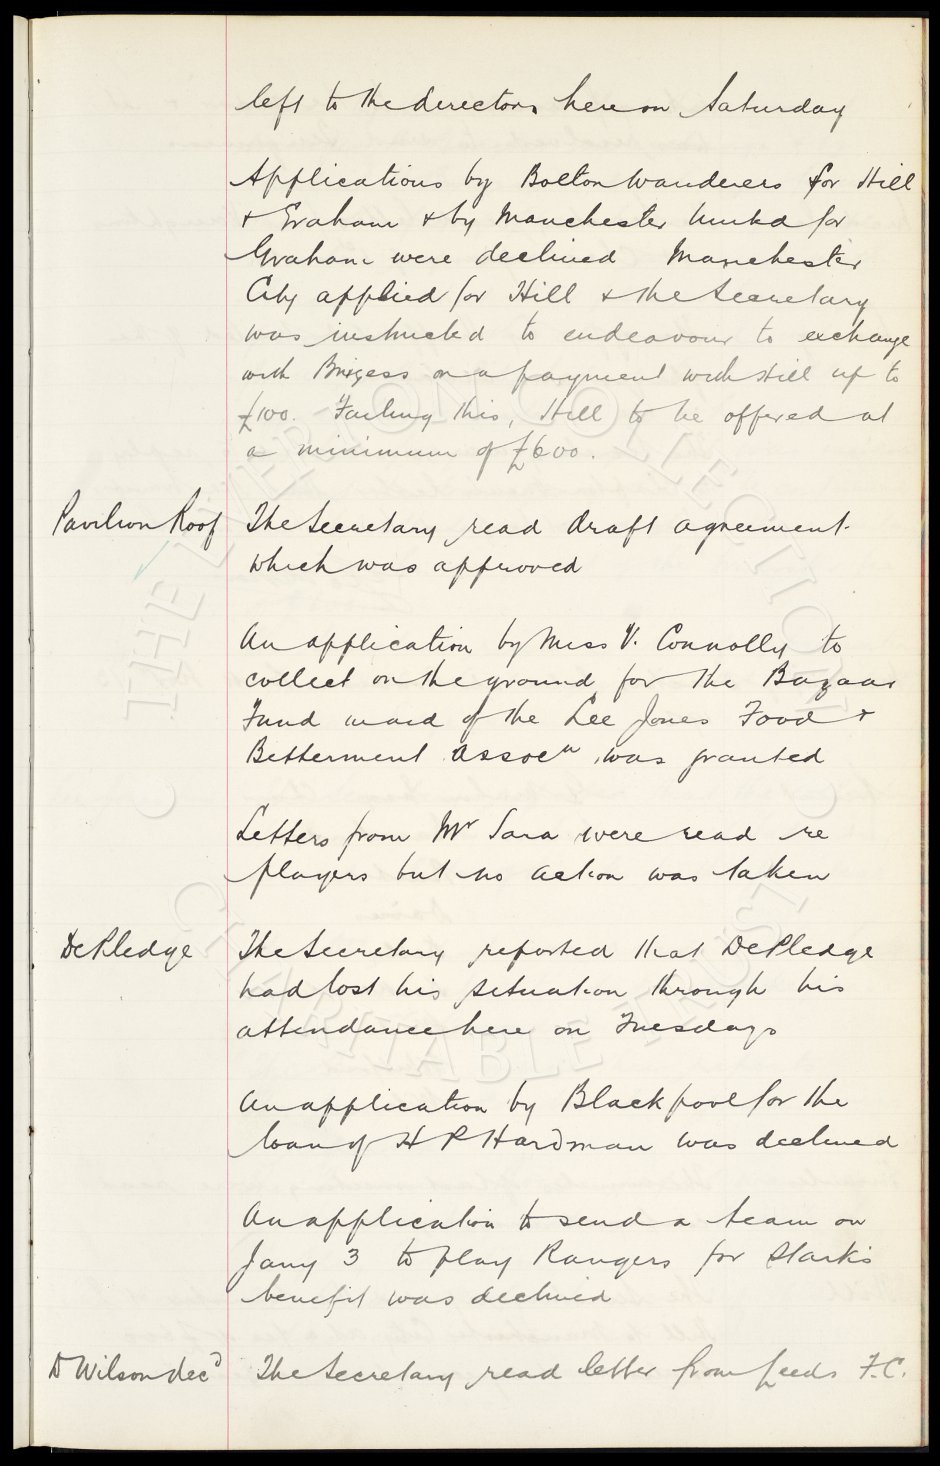 left to the directors here on Saturday
Applications by Bolton Wanderers for Hill
& Graham & by Manchester United for
Graham were declined Manchester
City applied for Hill & the Secretary
was instructed to endeavour to exchange
with Burgess on a payment with Hill up to
£100. Failing this, Hill to be offered at
a minimum of £600.
Pavilion Roof The Secretary read draft agreement
which was approved
An application by Miss V. Connolly to
collect on the ground for the Bazaar
Fund in aid of the Lee Jones Food &
Betterment Assocn was granted
Letters from Mr Sara were read re
players but no action was taken
DePledge The Secretary reported that DePledge
had lost his situation through his
attendance here on Tuesdays
An application by Blackpool for the
loan of H P Hardman was declined
An application to send a team on
Jany 3 to play Rangers for Stark's
benefit was declined
D Wilson decd The Secretary read letter from Leeds F.C.
© THE LEVERTON COLLECTION
CHARITABLE TRUST